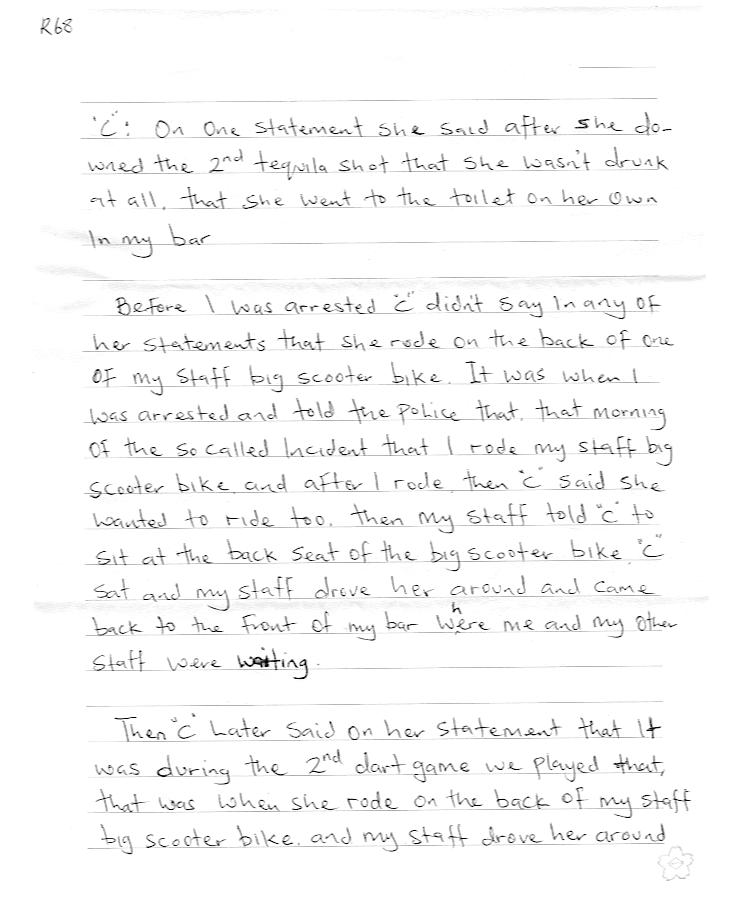 R68
"C": On One statement she said after she do-
wned the 2nd tequila shot that she wasn't drunk
at all, that she went to the toilet on her own
In my bar
Before I was arrested "C" didn't say In any of
her statements that she rode on the back of one
OF my staff big scooter bike. It was when I
was arrested and told the police that, that morning
of the so called Incident that I rode my staff big
scooter bike and after I rode, then "C" said she
wanted to ride too. Then my staff told "C" to
sit at the back seat of the big scooter bike, "C"
sat and my staff drove her around and came
back to the front of my bar where me and my other
staff were waiting.
Then "C" Later said on her statement that It
was during the 2nd dart game we played that,
that was when she rode on the back of my staff
big scooter bike, and my staff drove her around